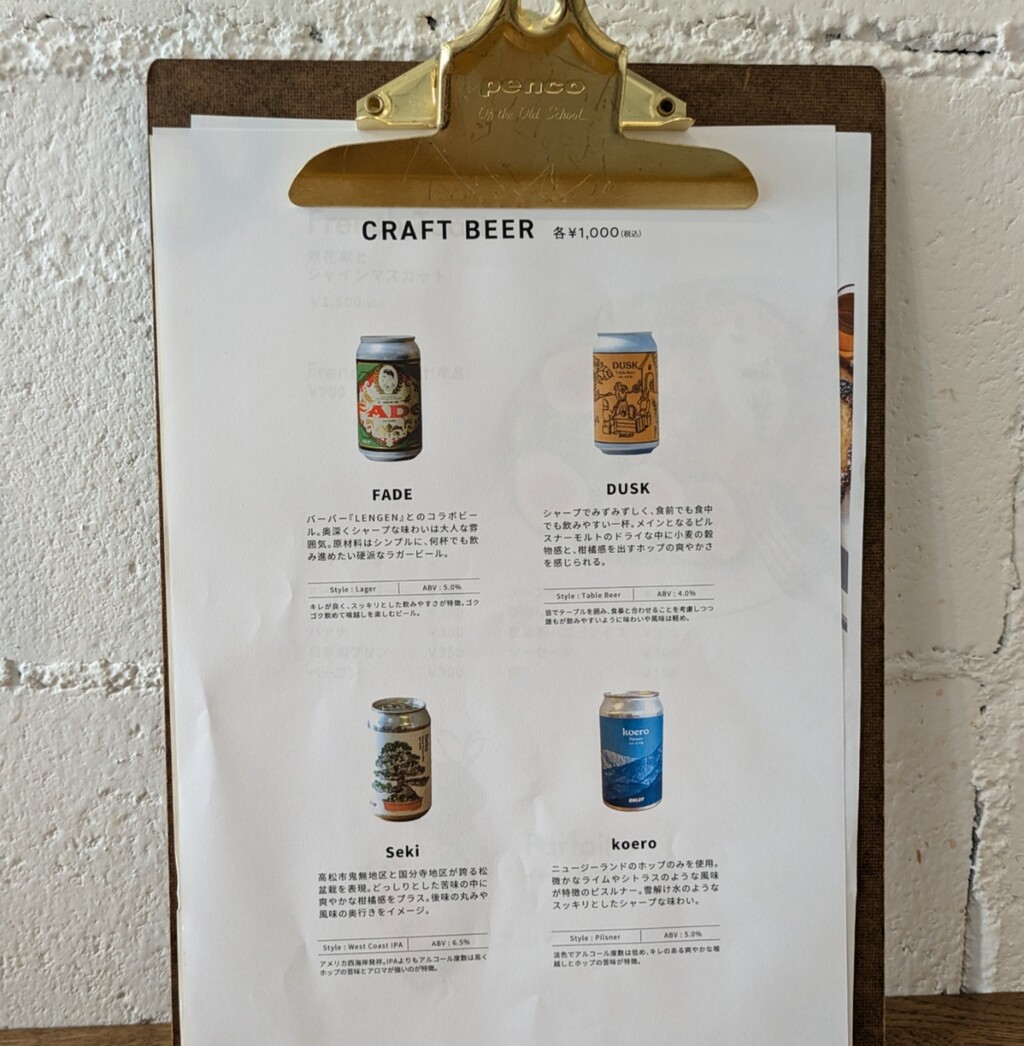 penco
Of the Old School
CRAFT BEER 各¥1,000(税込)
DUSK
FADE
バーバー『LENGEN』とのコラボビー
ル。奥深くシャープな味わいは大人な雰
囲気。原材料はシンプルに、何杯でも飲
み進めたい硬派なラガービール。
Style : Lager ABV : 5.0%
キレが良く、スッキリとした飲みやすさが特徴。ゴク
ゴク飲めて喉越しを楽しむビール。
DUSK
シャープでみずみずしく、食前でも食中
でも飲みやすい一杯。メインとなるピル
スナーモルトのドライな中に小麦の穀
物感と、柑橘感を出すホップの爽やかさ
を感じられる。
Style : Table Beer ABV : 4.0%
皆でテーブルを囲み、食事と合わせることを考慮しつつ
誰もが飲みやすいように味わいや風味は軽め。
koero
Seki
高松市鬼無地区と国分寺地区が誇る松
盆栽を表現。どっしりとした苦味の中に
爽やかな柑橘感をプラス。後味の丸みや
風味の奥行きをイメージ。
Style : West Coast IPA ABV : 6.5%
アメリカ西海岸発祥。IPAよりもアルコール度数は高く
ホップの苦味とアロマが強いのが特徴。
koero
ニュージーランドのホップのみを使用。
微かなライムやシトラスのような風味
が特徴のピスルナー。雪解け水のような
スッキリとしたシャープな味わい。
Style : Pilsner ABV : 5.0%
淡色でアルコール度数は低め、キレのある爽やかな喉
越しとホップの苦味が特徴。